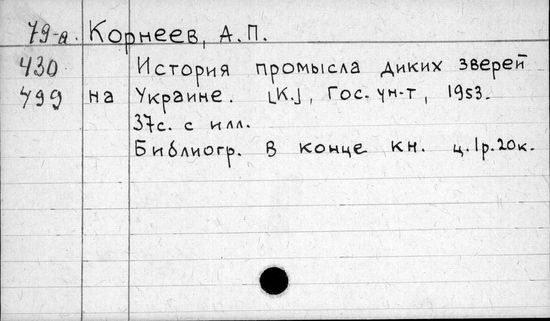 79-а. Корнеев, А.П.
430 История промысла диких зверей
499 на Украине. [К.], Гос. ун-т, 1953.
37с. с илл.
Библиогр. в конце кн. ц. 1р. 20к.